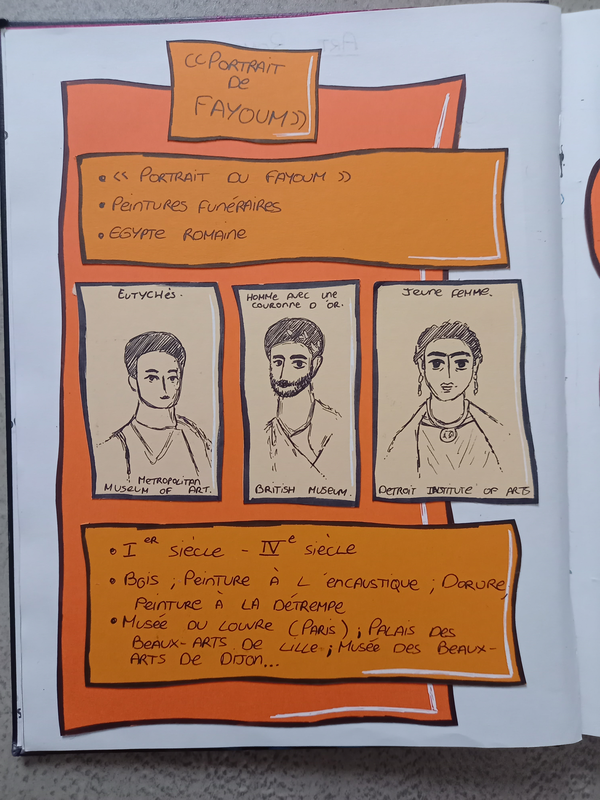 « PORTRAIT
DE
FAYOUM »
• « PORTRAIT DU FAYOUM »
• PEINTURES FUNÉRAIRES
• EGYPTE ROMAINE
EUTYCHÈS.
METROPOLITAN
MUSEUM OF ART.
HOMME AVEC UNE
COURONNE D'OR.
BRITISH MUSEUM.
JEUNE FEMME.
DETROIT INSTITUTE OF ARTS
• I ER SIÈCLE - IV e SIÈCLE
• BOIS ; PEINTURE À L'ENCAUSTIQUE ; DORURE,
PEINTURE À LA DÉTREMPE
• MUSÉE DU LOUVRE (PARIS) ; PALAIS DES
BEAUX-ARTS DE LILLE ; MUSÉE DES BEAUX-
ARTS DE DIJON...